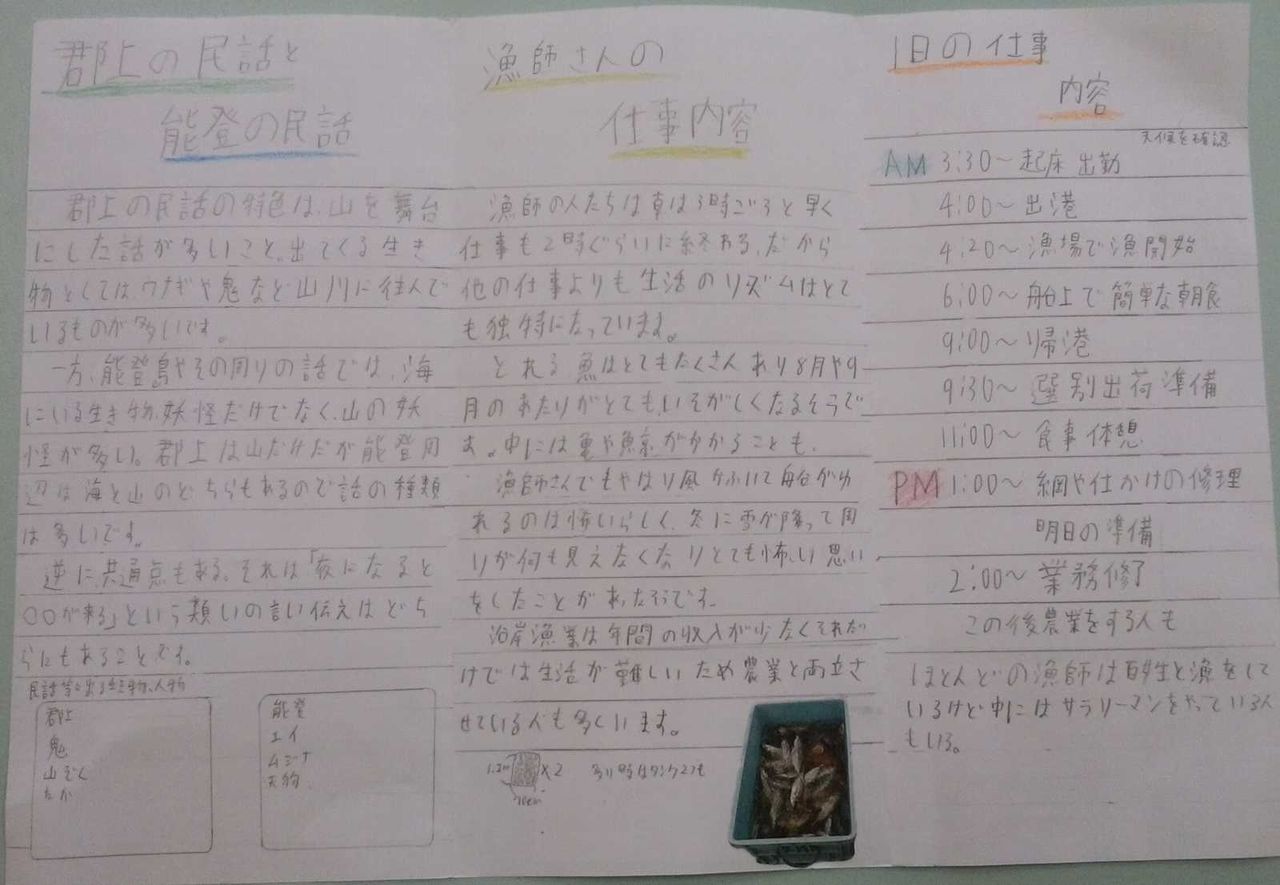 郡上の民話と
能登の民話
郡上の民話の特色は、山を舞台
にした話が多いこと。出てくる生き
物としては、ウナギや鬼など山川に住んで
いるものが多いです。
一方、能登島やその周りの話では、海
にいる生き物、妖怪だけでなく、山の妖
怪が多い。郡上は山だけだが能登周
辺は海と山のどちらもあるので話の種類
は多いです。
逆に、共通点もある。それは「夜になると
〇〇が来る」という類いの言い伝えはどち
らにもあることです。
民話等に出る生き物、人物
郡上
鬼
山ぞく
たか
能登
エイ
ムジナ
天狗
漁師さんの
仕事内容
漁師の人たちは朝は3時ごろと早く
仕事も2時ぐらいに終わる、だから
他の仕事よりも生活のリズムはとて
も独特になっています。
とれる魚はとてもたくさんあり8月や9
月のあたりがとてもいそがしくなるそうで
す。中には亀や鯨がかかることも、
漁師さんでもやはり風がふいて船がゆ
れるのは怖いらしく、冬に雪が降って周
りが何も見えなくなりとても怖い思い
をしたことがあったそうです。
沿岸漁業は年間の収入が少なくそれだ
けでは生活が難しいため農業と両立さ
せている人も多くいます。
1.2m
70cm
×2
多い時はタンク2つも
1日の仕事
内容
天候を確認
AM 3:30～起床出勤
4:00～出港
4:20～漁場で漁開始
6:00～船上で簡単な朝食
9:00～帰港
9:30～選別出荷準備
11:00～食事休憩
PM 1:00～網や仕かけの修理
明日の準備
2:00～業務修了
この後農業をする人も
ほとんどの漁師は百姓と漁をして
いるけど中にはサラリーマンをやっている人
もいる。